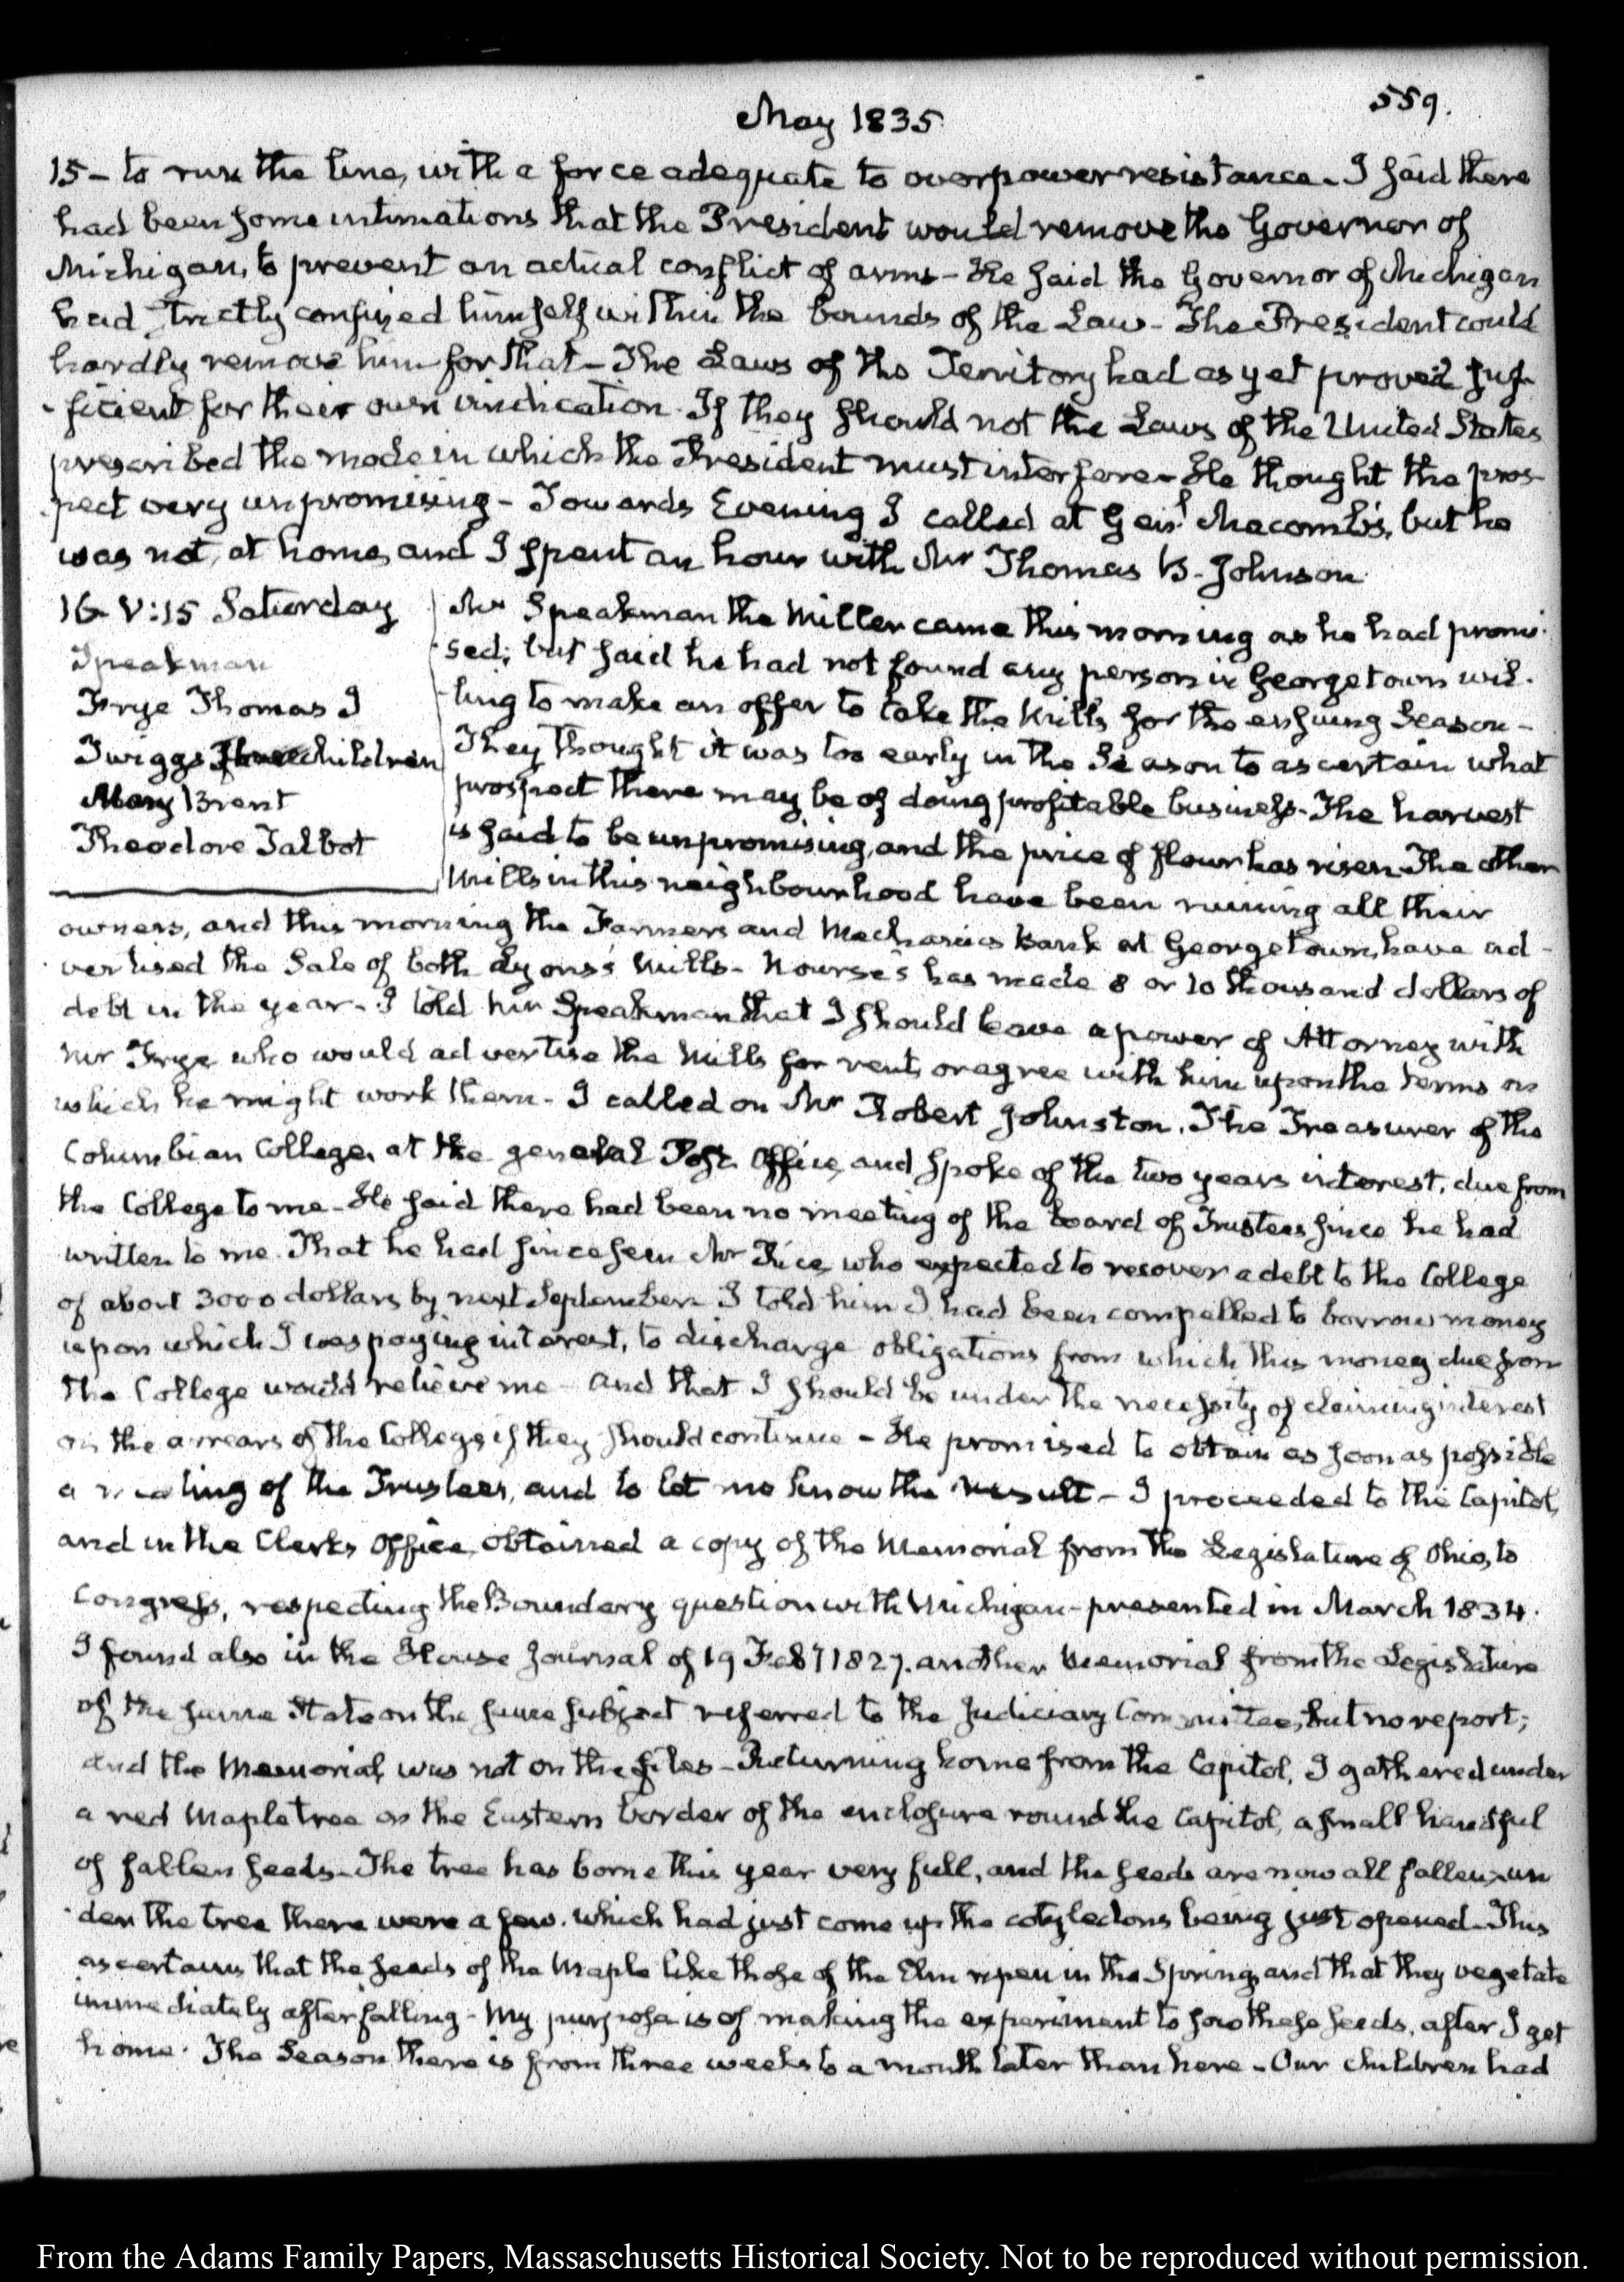 559.
May 1835
15 – to run the line, with a force adequate to overpower resistance. I said there
had been some intimations that the President would remove the Governor of
Michigan, to prevent an actual conflict of arms – He said the Governor of Michigan
had strictly confined himself within the bounds of the Law – The President could
hardly remove him for that – The Laws of the Territory had as yet proved suf-
ficient for their own vindication. If they should not the Laws of the United States
prescribed the mode in which the President must interfere – He thought the pros-
pect very unpromising – Towards Evening I called at Genl. Macomb's, but he
was not, at home, and I spent an hour with Mr Thomas B. Johnson
16. V:15 Saturday
Speakman
Frye Thomas J
Twiggs Three children
Mary Brent
Theodore Talbot
Mr Speakman the Miller came this morning as he had promi-
sed; but said he had not found any person in Georgetown wil-
ling to make an offer to take the Mills for the ensuing Season –
They thought it was too early in the Season to ascertain what
prospect there may be of doing profitable business. The harvest
is said to be unpromising, and the price of flour has risen. The other
Mills in this neighbourhood have been ruining all their
owners, and this morning the Farmers and Mechanics Bank at Georgetown, have ad-
vertised the Sale of both Lyons's Mills – Nourse's has made 8 or 10 thousand dollars of
debt in the year – I told Mr Speakman that I should leave a power of Attorney with
Mr Frye who would advertise the Mills for rent, or agree with him upon the terms on
which he might work them – I called on Mr Robert Johnston, The Treasurer of the
Columbian College, at the general Post Office, and spoke of the two years interest, due from
the College to me – He said there had been no meeting of the board of Trustees since he had
written to me. That he had since seen Mr Rice, who expected to recover a debt to the College
of about 3000 dollars by next September. I told him I had been compelled to borrow money
upon which I was paying interest, to discharge obligations from which this money due from
the College would relieve me – and that I should be under the necessity of claiming interest
on the arrears of the College if they should continue – He promised to obtain as soon as possible
a meeting of the Trustees, and to let me know the result – I proceeded to the Capitol,
and in the Clerk's Office, obtained a copy of the Memorial from the Legislature of Ohio, to
Congress, respecting the Boundary question with Michigan – presented in March 1834.
I found also in the House Journal of 19 Feby 1827. another Memorial from the Legislature
of the same State on the same subject referred to the Judiciary Committee, but no report;
and the Memorial was not on the files – Returning home from the Capitol, I gathered under
a red Maple tree on the Eastern border of the enclosure round the Capitol, a small handful
of fallen seeds – The tree has borne this year very full, and the seeds are now all fallen, un
der the tree there were a few. which had just come up the cotyledons being just opened. This
ascertains that the seeds of the Maple like those of the Elm ripen in the Spring, and that they vegetate
immediately after falling – My purpose is of making the experiment to sow these seeds, after I get
home. The Season there is from three weeks to a month later than here – Our children had
From the Adams Family Papers, Massaschusetts Historical Society. Not to be reproduced without permission.